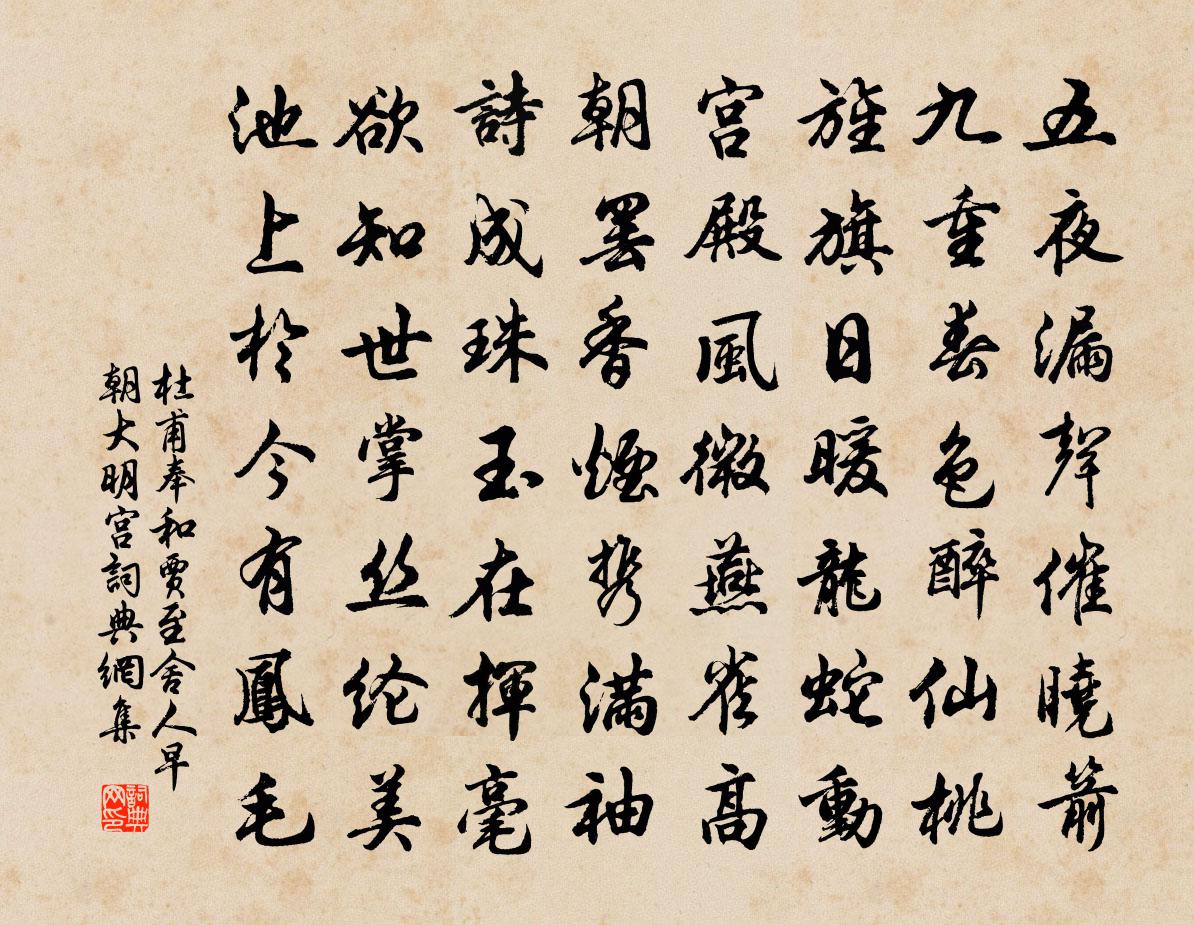 五夜漏聲催曉箭
九重春色醉仙桃
旌旗日暖龍蛇動
宮殿風微燕雀高
朝罷香煙攜滿袖
詩成珠玉在揮毫
欲知世掌丝纶美
池上於今有鳳毛
杜甫奉和賈至舍人早
朝大明宮詞典網集
詞典
网印